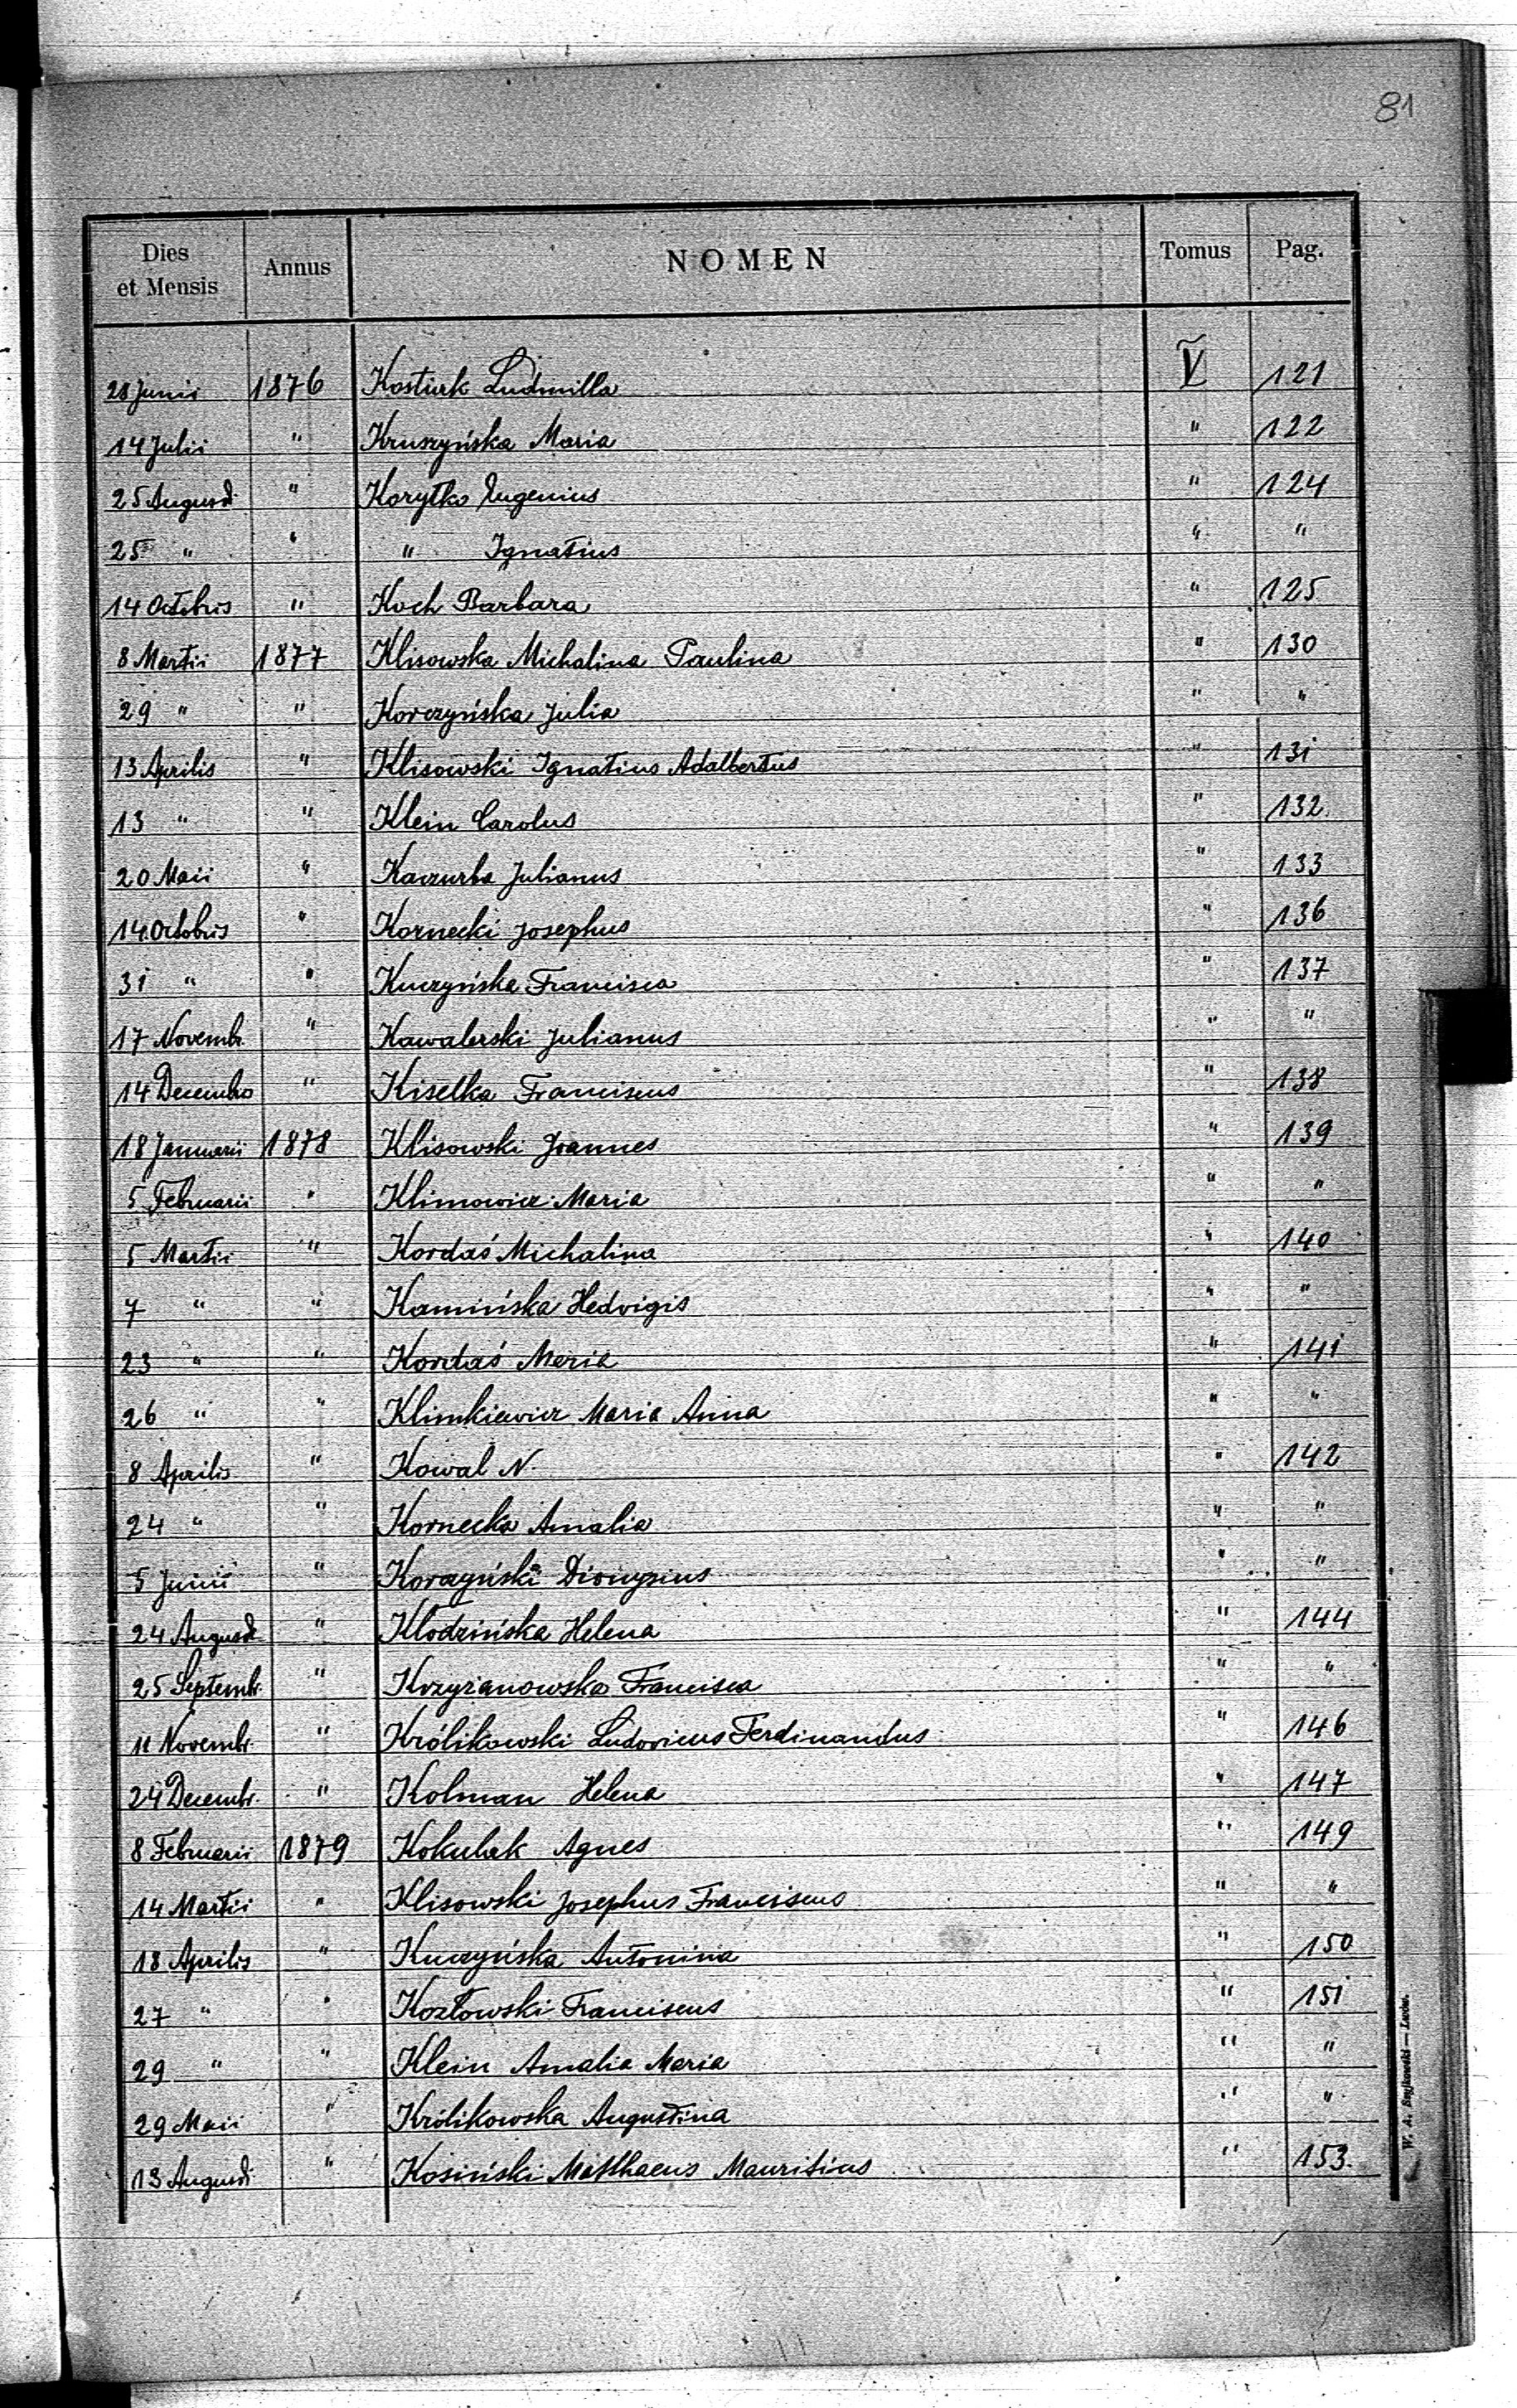 81
Dies et Mensis Annus NOMEN Tomus Pag.
28 Junii 1876 Kostiuk Ludmilla V 121
14 Julii " Kruszyńska Maria " 122
25 Augusti " Korytko Eugenius " 124
25 " " " Ignatius " "
14 Octobris " Koch Barbara " 125
8 Martii 1877 Klisowska Michalina Paulina " 130
29 " " Korczyńska Julia " "
13 Aprilis " Klisowski Ignatius Adalbertus " 131
13 " " Klein Carolus " 132
20 Maii " Kaczurba Julianus " 133
14 Octobris " Kornecki Josephus " 136
31 " " Kuczyńska Francisca " 137
17 Novembr. " Kawalerski Julianus " "
14 Decembris " Kiselka Franciscus " 138
18 Januarii 1878 Klisowski Joannes " 139
5 Februarii " Klimowicz Maria " "
5 Martii " Kordaś Michalina " 140
7 " " Kamińska Hedvigis " "
23 " " Kordaś Maria " 141
26 " " Klimkiewicz Maria Anna " "
8 Aprilis " Kowal N. " 142
24 " " Kornecka Amalia " "
5 Junii " Korczyński Dionysius " "
24 Augusti " Klodzińska Helena " 144
25 Septembr. " Krzyżanowska Francisca " "
11 Novembr. " Królikowski Ludovicus Ferdinandus " 146
24 Decembr. " Kolman Helena " 147
8 Februarii 1879 Kokulak Agnes " 149
14 Martii " Klisowski Josephus Franciscus " "
18 Aprilis " Kuczyńska Antonina " 150
27 " " Kozłowski Franciscus " 151
29 " " Klein Amalia Maria " "
29 Maii " Królikowska Augustina " "
13 Augusti " Kosiński Matthaeus Mauritius " 153.
W. A.